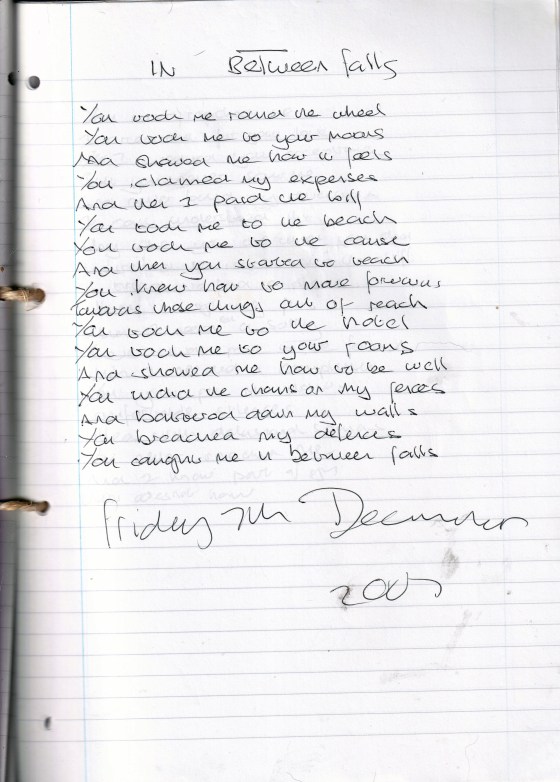 IN BETWEEN falls
You took me round the wheel
You took me to your moons
And showed me how it feels
You claimed my expenses
And then I paid the bill
You took me to the beach
You took me to the cause
And then you started to teach
You knew how to move forwards
Towards those things out of reach
You took me to the hotel
You took me to your rooms
And showed me how to be well
You undid the chains on my fences
And battered down my walls
You breached my defences
You caught me in between falls
Friday 7th December